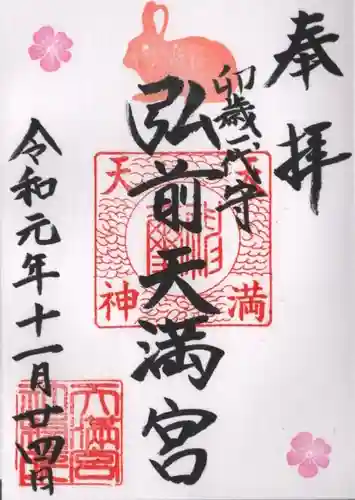 奉拝
卯歳一代守
弘前天満宮
令和元年十一月廿四日
天満
天神
天満宮